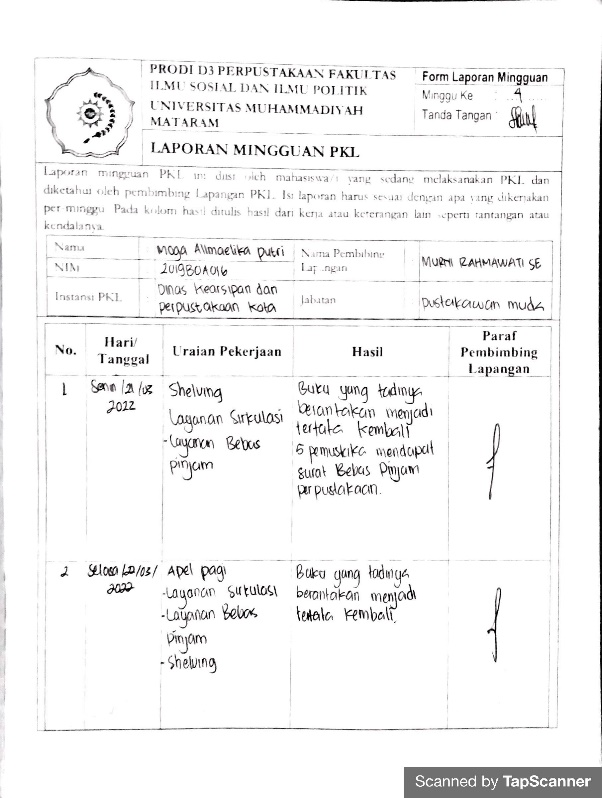 PRODI D3 PERPUSTAKAAN FAKULTAS
ILMU SOSIAL DAN ILMU POLITIK
UNIVERSITAS MUHAMMADIYAH
MATARAM
LAPORAN MINGGUAN PKL
Form Laporan Mingguan
Minggu Ke : 4
Tanda Tangan :
Laporan mingguan PKL ini diisi oleh mahasiswa/i yang sedang melaksanakan PKL dan
diketahui oleh pembimbing Lapangan PKL. Isi laporan harus sesuai dengan apa yang dikerjakan
per-minggu. Pada kolom hasil ditulis hasil dari kerja atau keterangan lain seperti tantangan atau
kendalanya.
Nama Moga Alimaelika putri
NIM 2019B0A016
Instansi PKL Dinas Kearsipan dan
perpustakaan kota
Nama Pembibing
Lapangan MURTI RAHMAWATI SE
Jabatan pustakawan muda
No. Hari/
Tanggal Uraian Pekerjaan Hasil Paraf
Pembimbing
Lapangan
1 Senin /21 /03
2022
Shelving
Layanan Sirkulasi
-Layanan Bebas
pinjam
Buku yang tadinya
berantakan menjadi
tertata kembali
5 pemustika mendapat
surat Bebas Pinjam
perpustakaan.
2 Selasa /22/03/
2022
Apel pagi
-Layanan Sirkulasi
-Layanan Bebas
Pinjam
- Shelving
Buku yang tadinya
berantakan menjadi
tertata kembali.
Scanned by TapScanner